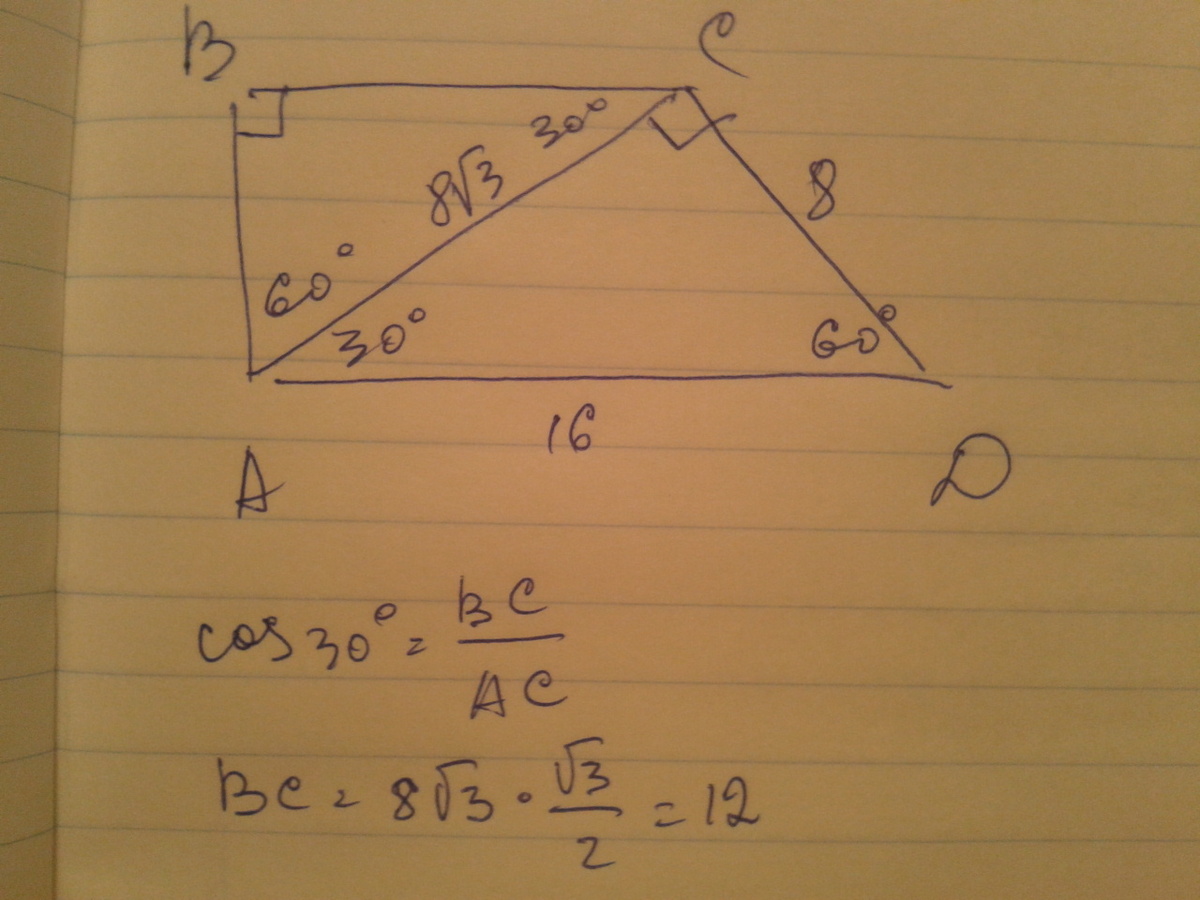 B C
30°
8√3 8
60°
30° 60°
16
A D
cos30° = BC/AC
BC = 8√3 · √3/2 = 12